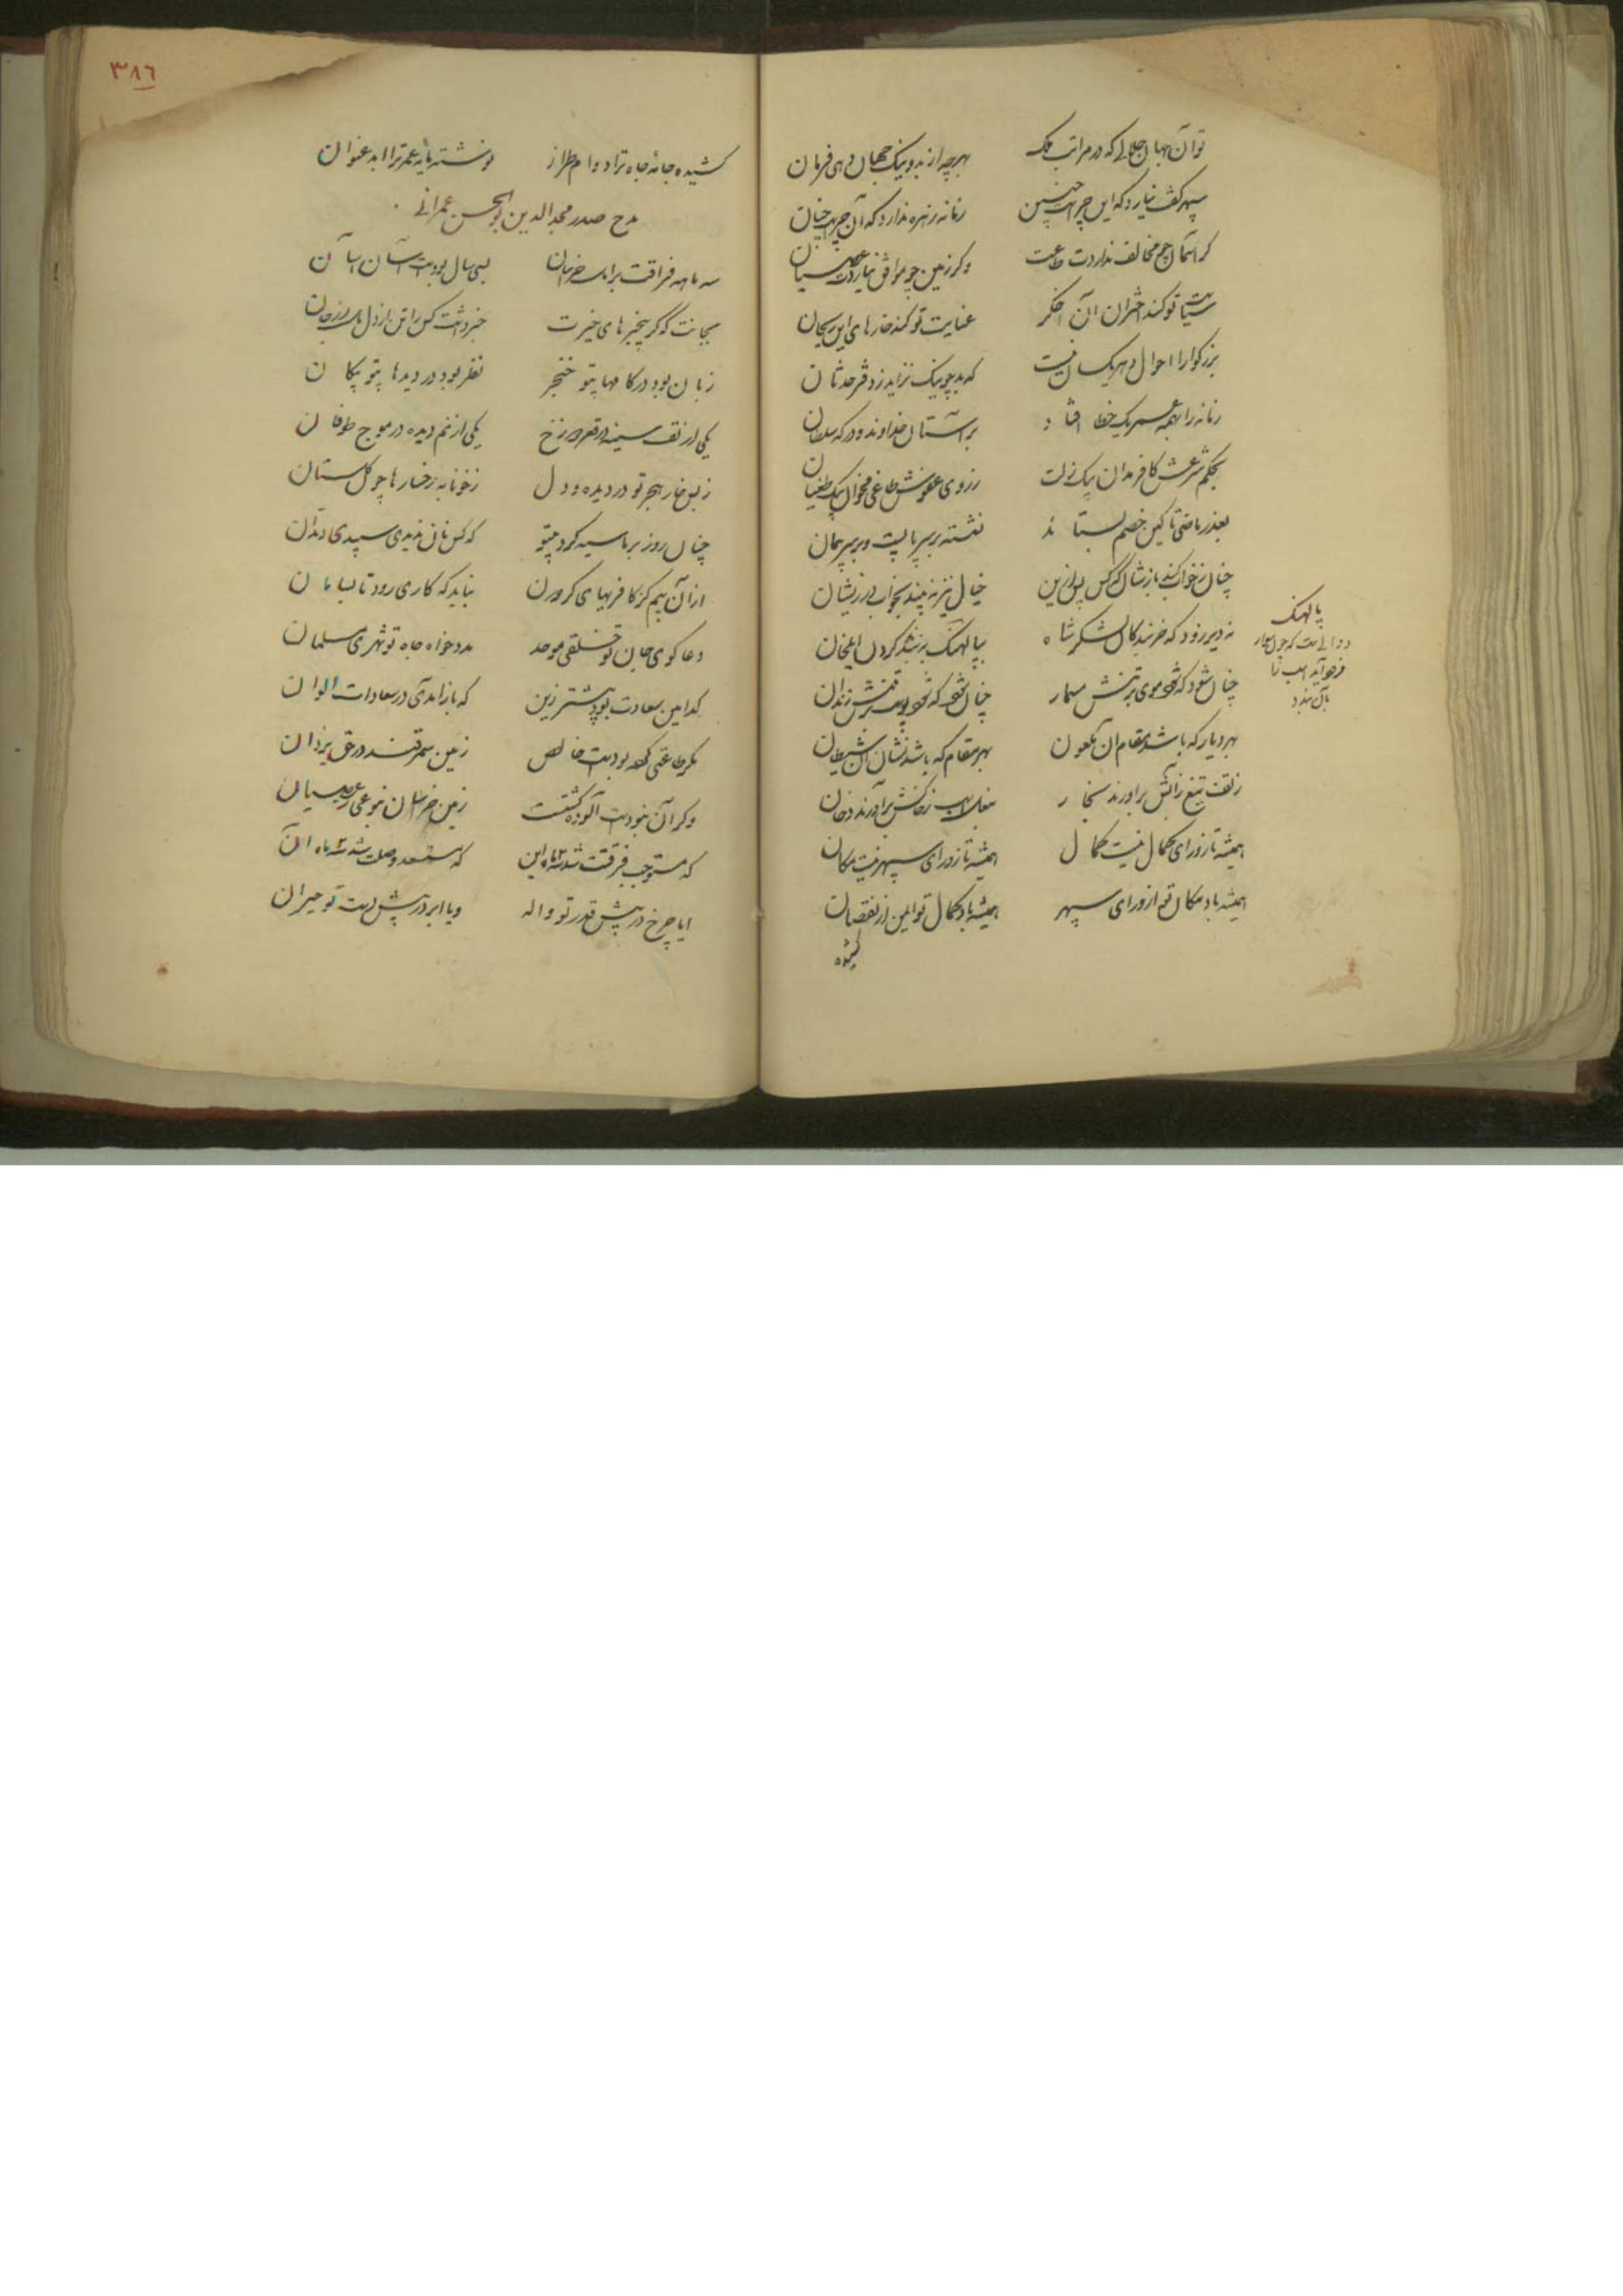 تو آن جهان جلالی که در مراتب ملک بهرچه از بد و نیک جهان دهی فرمان
سپهر کف نیارد که این چراست چنین زمانه زهره ندارد که آن چراست چنان
کر آسمان چو مخالف نداردت طاعت وکر زمین چو موافق نیاردت عصیان
سیاست تو کند اختران آن اخکر عنایت تو کند خارهای این ریحان
بزرکوارا احوال دهر یکسان نیست که بد چو نیک نزاید ز دفتر حدثان
زمانه را بهمه عمر یک خطا افتاد بر آستان خداوند و درکه سلطان
بحکم شرعش کافر مدان بیک زلت ز روی عفوش طاغی مخوان بیک طغیان
بعذر ماضی تا کین خصم بستاند نشسته بر سر پایست و بر سر پیمان
چنان بخواب کند بازشان که کس پس ازین خیال نیز نه بیند بخواب در زیشان
نه دیر زود که خربندکان لشکر شاه بپالهنک ببندند کردن ایلخان
چنان شود که شود موی بر تنش مسمار چنان شود که شود پوست بر تنش زندان
بهر دیار که باشد مقام آن ملعون بهر مقام که باشد نشان آن شیطان
ز تف تیغ ز آتش برآورند بخار بنعل اسب ز خاکش برآورند دخان
همیشه تا ز ورای کمال نیست کمال همیشه تا ز ورای سپهر نیست مکان
همیشه باد مکان تو از ورای سپهر همیشه باد کمال تو ایمن از نقصان
کشیده
پالهنک
دوالی است که چون سوار
فرود آید اسب را
بآن بندد
٣٨٦
کشیده جامه جاه ترا دوام طراز نوشته نامه عمر ترا ابد عنوان
مدح صدر مجد الدین ابوالحسن عمرانی
سه ماهه فراقت بر اهل خراسان بسی سال بودست آسان آسان
بجانت که کر بیخبرهای خیرت خبر داشت کس را تن از دل دل از جان
زبان بود در کامها بیتو خنجر نظر بود در دیدها بیتو پیکان
یکی از تف سینه در قعر دوزخ یکی از نم دیده در موج طوفان
ز بس خار هجر تو در دیده و دل ز خونابه رخسارها چو کلستان
چنان روز بر ما سیه کرد بیتو که کس نان ندیدی سپیدی دندان
از آن بیم کز کافریهای کردون نباید که کاری رود نابسامان
دعا کوی جان تو خلقی موحد مدد خواه جاه تو شهری مسلمان
کدامین سعادت بود بیشتر زین که باز آمدی در سعادات الوان
مکر طاعتی کفته بودست خالص زمین سمرقند در حق یزدان
وکر آن نبودست آلوده کشتست زمین خراسان بنوعی ز عصیان
که مستوجب فرقت شد سه ماه این که مستسعد وصلت شد سه ماه آن
ایا چرخ در پیش قدر تو واله ویا ابر در پیش دست تو حیران